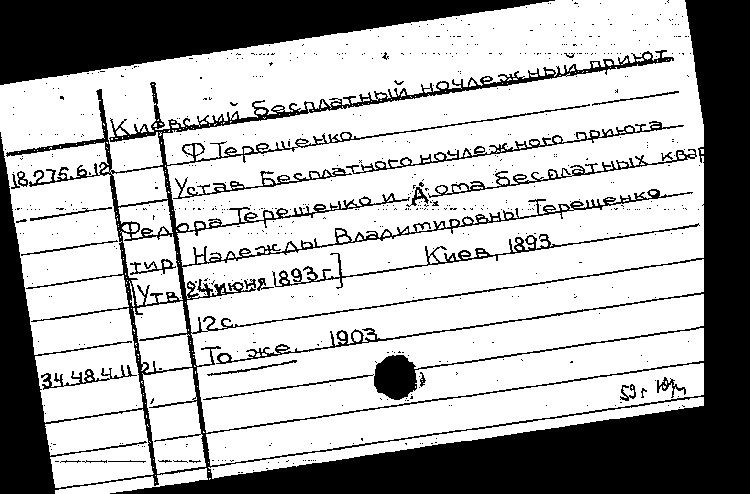 Киевский бесплатный ночлежный приют
Ф. Терещенко.
18.275.6.12
Устав бесплатного ночлежного приюта
Федора Терещенко и Дома бесплатных квар
тир Надежды Владимировны Терещенко.
[Утв. 24 июня 1893 г.] Киев, 1893.
12 с.
34.48.4.11 21. То же. 1903
59 г.